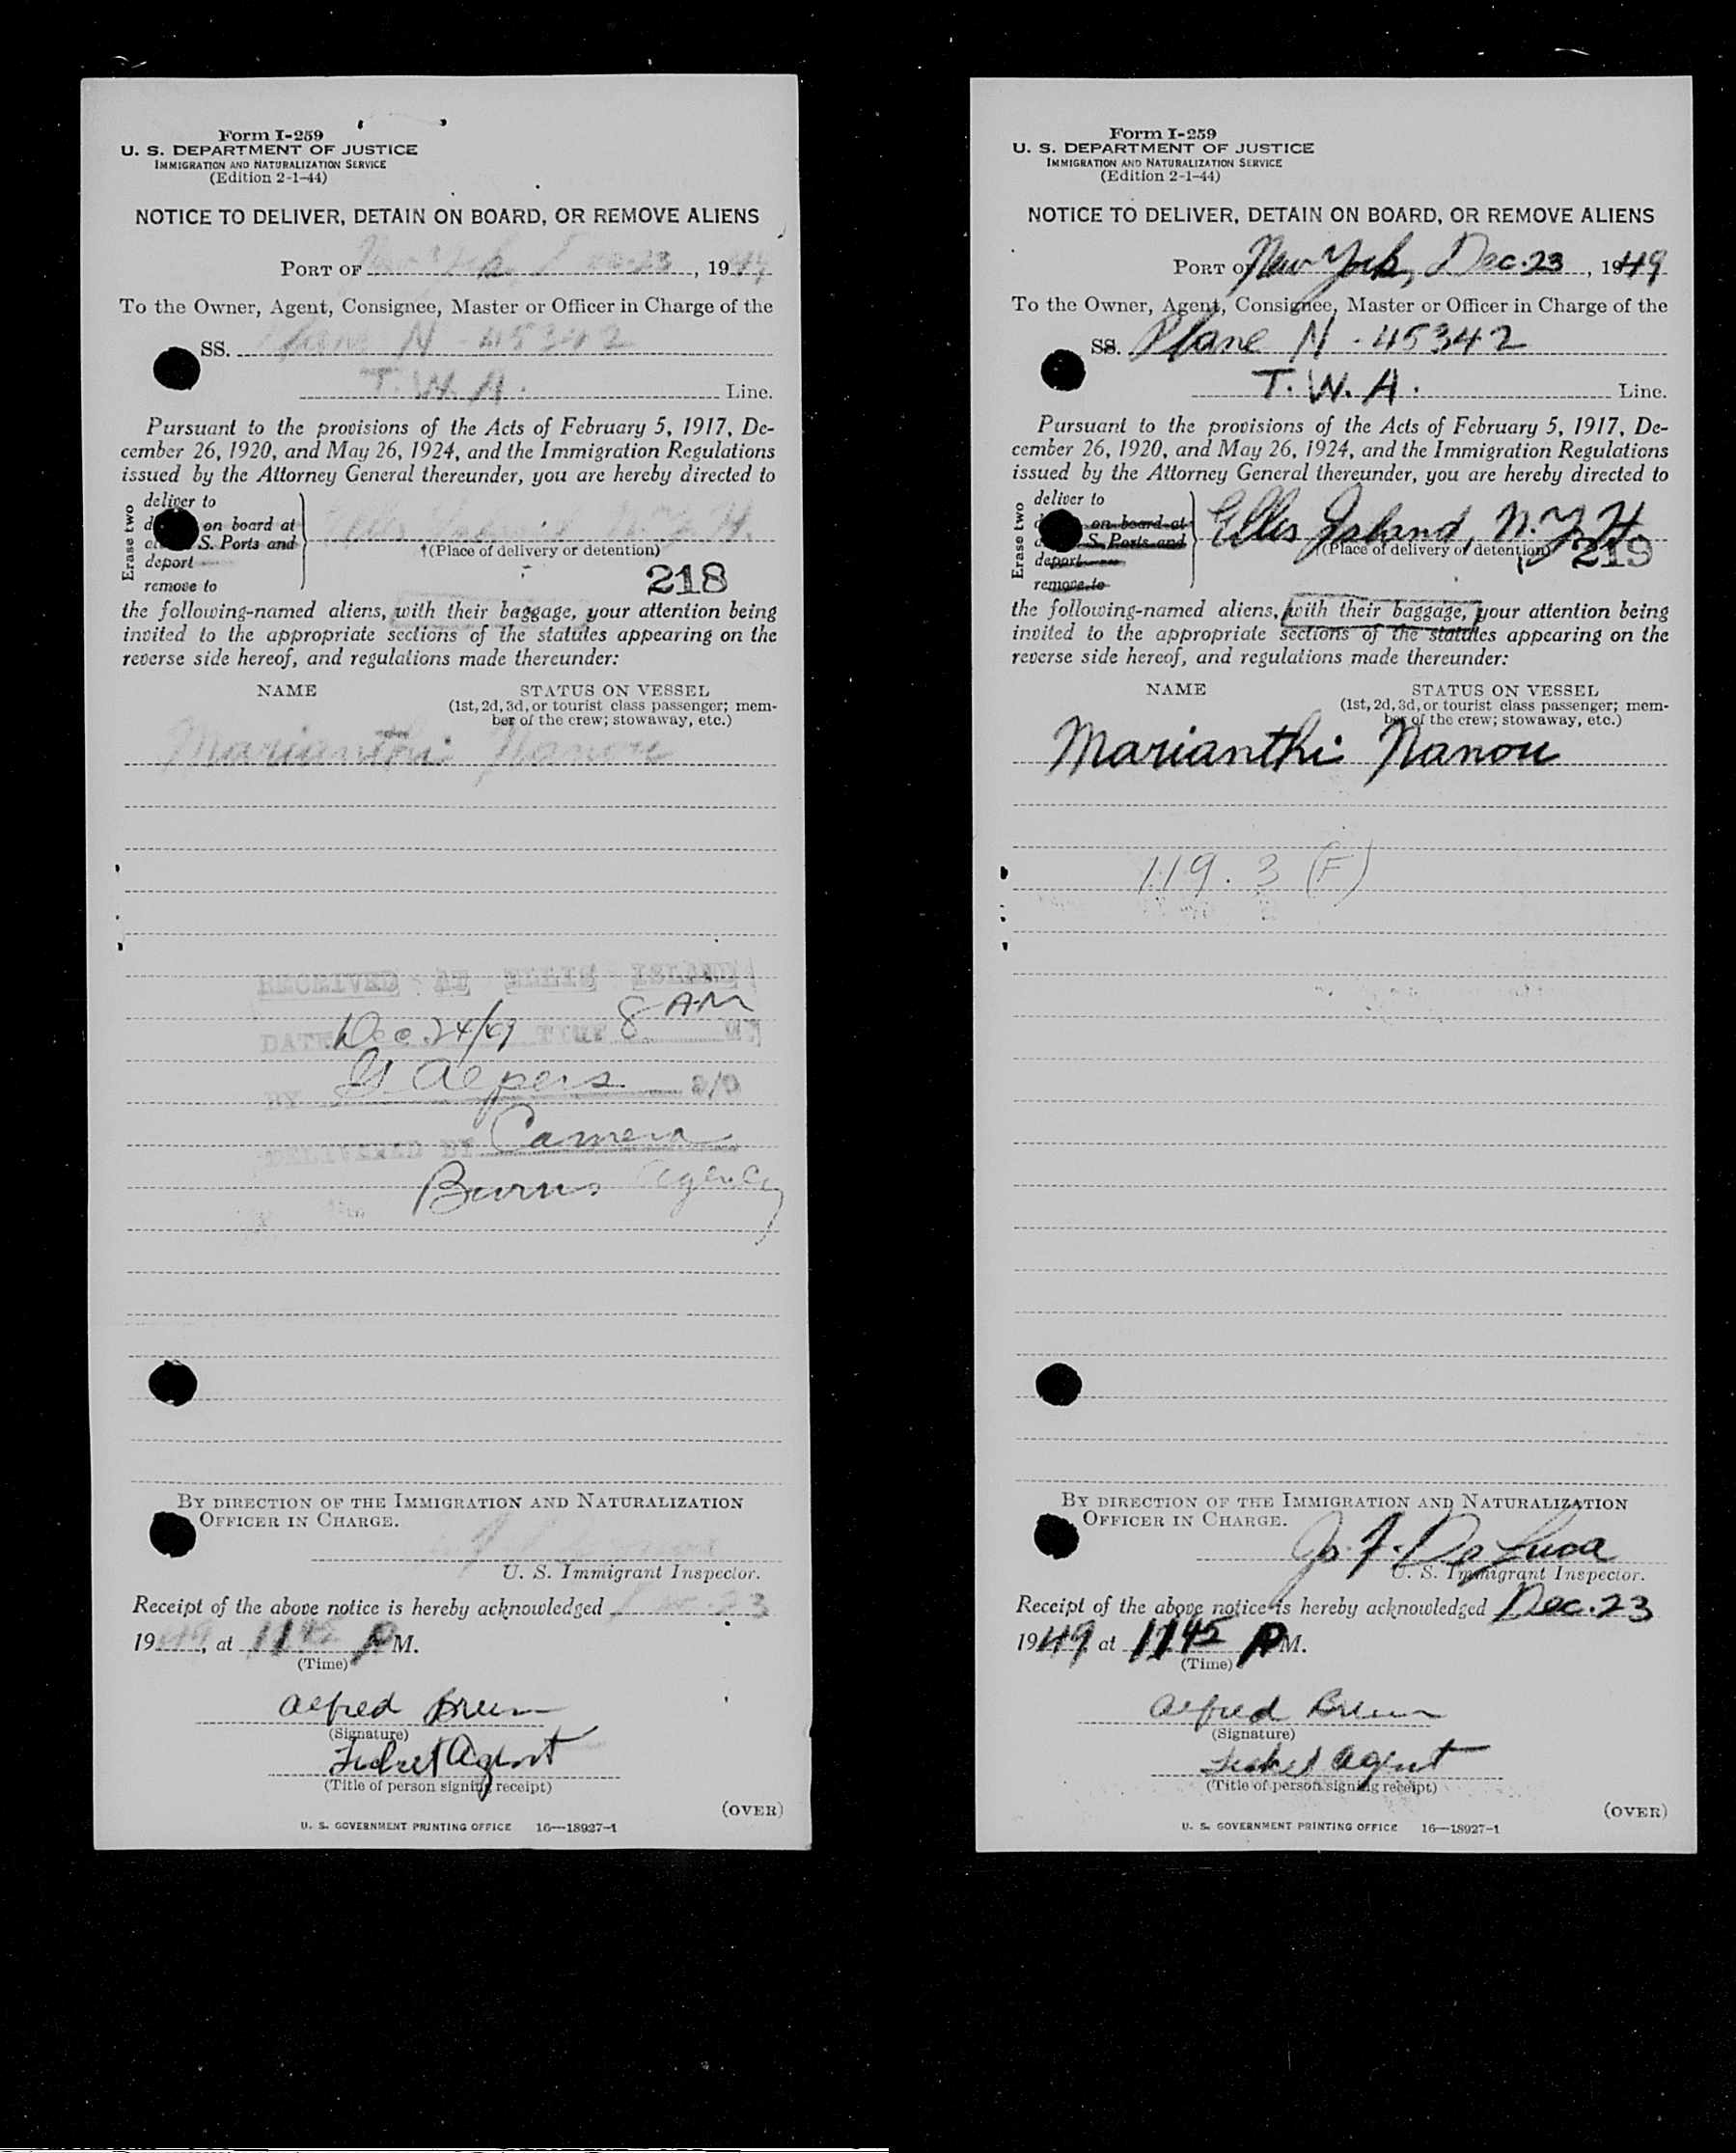 Form I-259
U. S. DEPARTMENT OF JUSTICE
IMMIGRATION AND NATURALIZATION SERVICE
(Edition 2-1-44)
NOTICE TO DELIVER, DETAIN ON BOARD, OR REMOVE ALIENS
PORT OF New York, Dec. 23, 1949
To the Owner, Agent, Consignee, Master or Officer in Charge of the
SS. Plane N-45342
T. W. A. Line.
Pursuant to the provisions of the Acts of February 5, 1917, De-
cember 26, 1920, and May 26, 1924, and the Immigration Regulations
issued by the Attorney General thereunder, you are hereby directed to
Erase two
deliver to
on board at
S. Ports and
deport
remove to
Ellis Island, N.Y.H.
(Place of delivery or detention)
218
the following-named aliens, with their baggage, your attention being
invited to the appropriate sections of the statutes appearing on the
reverse side hereof, and regulations made thereunder:
NAME STATUS ON VESSEL
(1st, 2d, 3d, or tourist class passenger; mem-
ber of the crew; stowaway, etc.)
Marianthi Nanou
RECEIVED AT ELLIS ISLAND
DATE Dec. 24/49 TIME 8 AM M
BY
DELIVERED BY Camera
Burns Agency
BY DIRECTION OF THE IMMIGRATION AND NATURALIZATION
OFFICER IN CHARGE.
U. S. Immigrant Inspector.
Receipt of the above notice is hereby acknowledged Dec. 23
1949, at 1145 P M.
(Time)
Alfred
(Signature)
Ticket Agent
(Title of person signing receipt)
(OVER)
U. S. GOVERNMENT PRINTING OFFICE 16—18927-1
Form I-259
U. S. DEPARTMENT OF JUSTICE
IMMIGRATION AND NATURALIZATION SERVICE
(Edition 2-1-44)
NOTICE TO DELIVER, DETAIN ON BOARD, OR REMOVE ALIENS
PORT OF New York, Dec. 23, 1949
To the Owner, Agent, Consignee, Master or Officer in Charge of the
SS. Plane N-45342
T. W. A. Line.
Pursuant to the provisions of the Acts of February 5, 1917, De-
cember 26, 1920, and May 26, 1924, and the Immigration Regulations
issued by the Attorney General thereunder, you are hereby directed to
Erase two
deliver to
on board at
S. Ports and
deport
remove to
Ellis Island, N.Y.H.
(Place of delivery or detention)
219
the following-named aliens, with their baggage, your attention being
invited to the appropriate sections of the statutes appearing on the
reverse side hereof, and regulations made thereunder:
NAME STATUS ON VESSEL
(1st, 2d, 3d, or tourist class passenger; mem-
ber of the crew; stowaway, etc.)
Marianthi Nanou
119.3 (F)
BY DIRECTION OF THE IMMIGRATION AND NATURALIZATION
OFFICER IN CHARGE.
De Luca
U. S. Immigrant Inspector.
Receipt of the above notice is hereby acknowledged Dec. 23
1949 at 1145 P M.
(Time)
Alfred
(Signature)
Ticket Agent
(Title of person signing receipt)
(OVER)
U. S. GOVERNMENT PRINTING OFFICE 16—18927-1